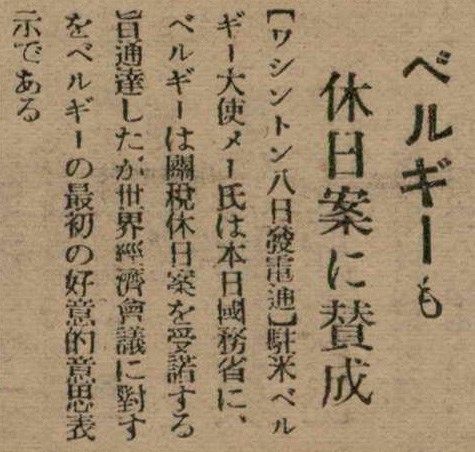 ベルギーも
休日案に賛成
【ワシントン八日發電通】駐米ベル
ギー大使メー氏は本日國務省に、
ベルギーは關税休日案を受諾する
旨通達したが世界經濟會議に對す
をベルギーの最初の好意的意思表
示である